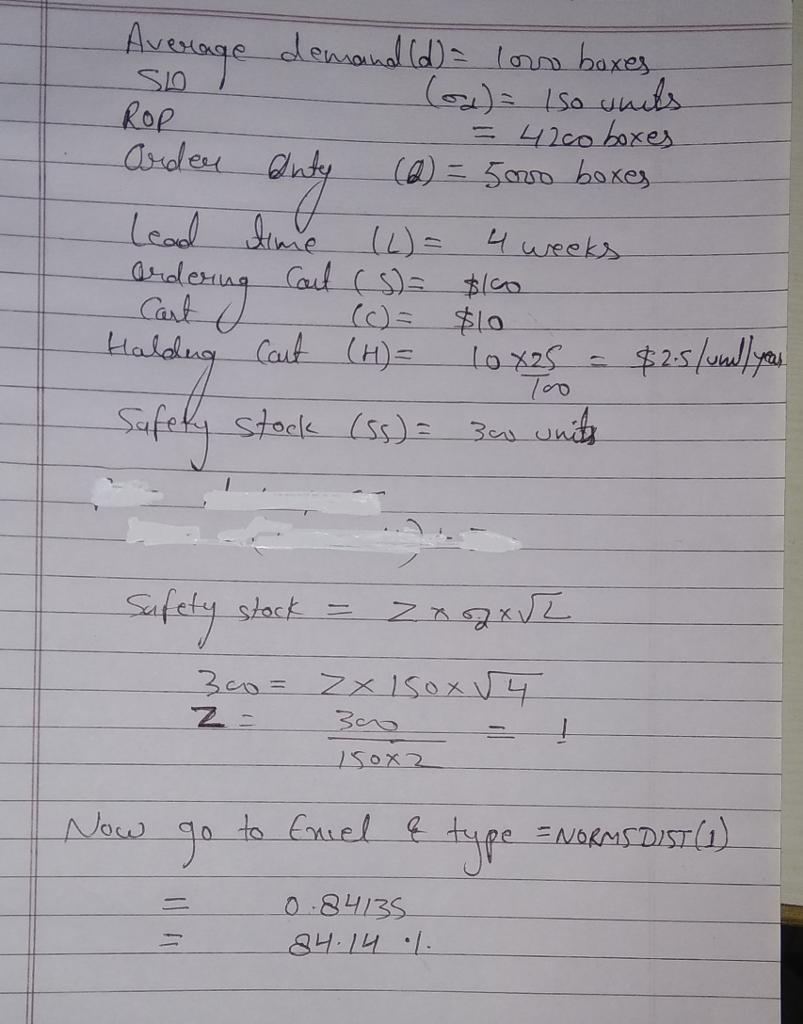 Average demand (d) = 1000 boxes
SD (σd) = 150 units
ROP = 4200 boxes
Order Qnty (Q) = 5000 boxes
Lead time (L) = 4 weeks
Ordering Cost (S) = $100
Cost (C) = $10
Holding Cost (H) = 10 × 25 / 100 = $2.5/unit/year
Safety stock (SS) = 300 units
Safety stock = Z × σd × √L
300 = Z × 150 × √4
Z = 300 / 150×2 = 1
Now go to Excel & type =NORMSDIST(1)
= 0.84135
= 84.14 %